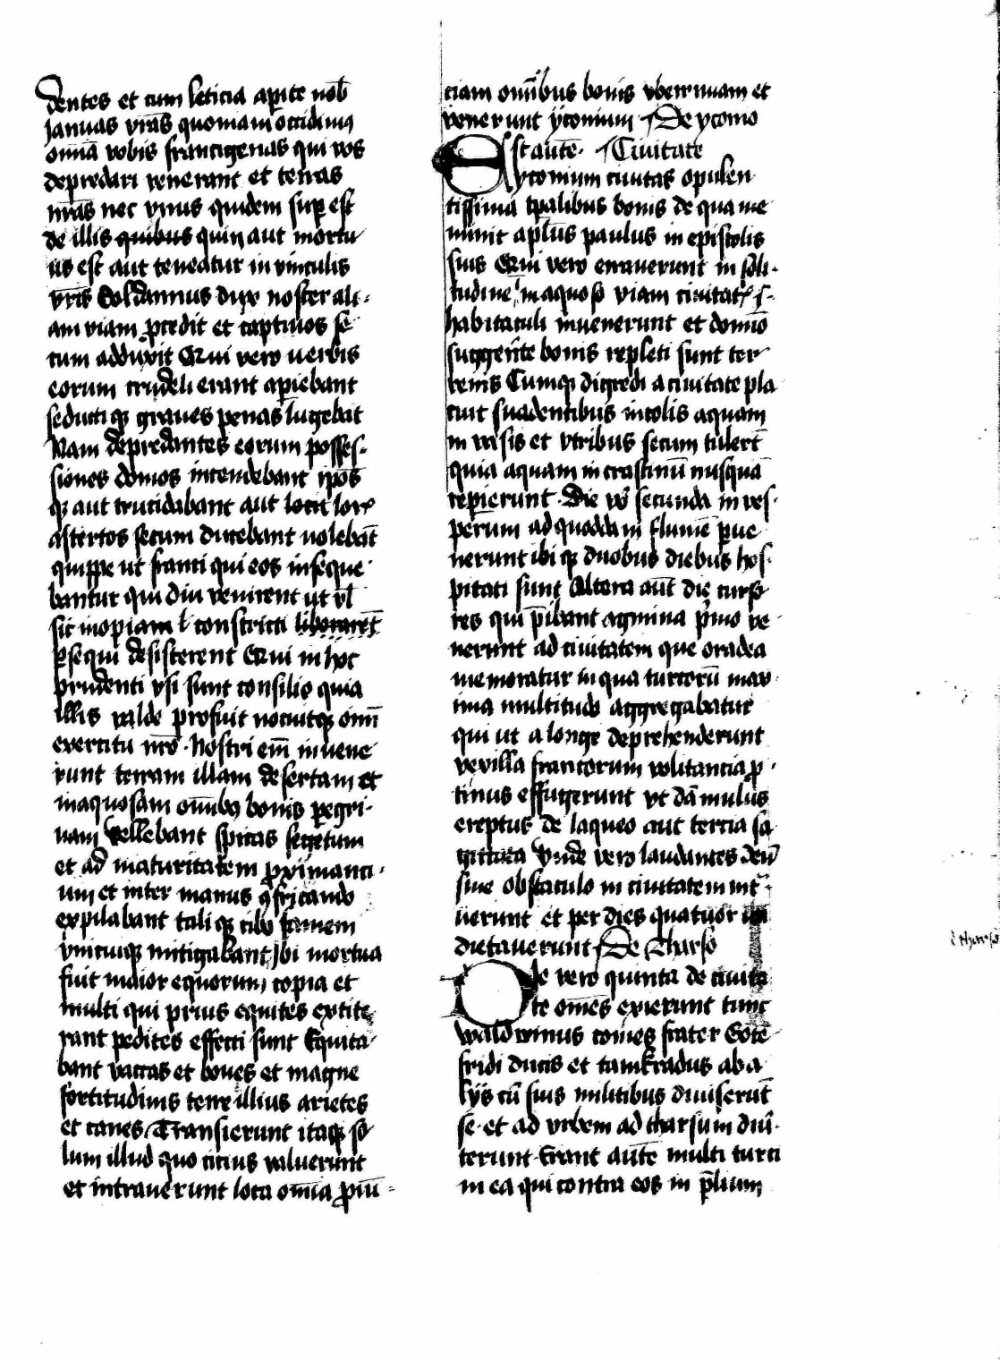 dentes et cum leticia aperite nob̄
Januas vr̄as quoniam occidimꝰ
om̄ia vobis francigenas qui vos
depredari venerant et terras
nr̄as nec vnus quidem suꝑ est
de illis quibus quin aut mortu
us est aut teneatur in vinculis
vr̄is Soldannus dux noster ali-
am viam ꝓcedit et captiuos se
cum adduxit Qui vero verbis
eorum crudeli erant apiebant
seducti qꝫ graues penas lugebāt
Nam depredantes eorum posses-
siones domos incendebant ip̄os
qꝫ aut trucidabant aut
secum ducebant nolebāt
quippe ut franci qui eos inseque-
bantur qui diu venirent ut vl̄
sic inopiam l̄ constricti liberarēt
ꝑsequi desisterent Qui in hoc
prudenti vsi sunt consilio quia
illis valde profuit nocuitqꝫ om̄i
exercitu nr̄o · Nostri em̄ inuene
runt terram illam desertam et
inaquosam om̄ibꝫ bonis peregri-
nam vellebant spicas segetum
et ad maturitatem ꝓximanci-
um et inter manus ꝯfricando
expilabant tali qꝫ cibo famem
vnicuiqꝫ mitigabant Ibi mortua
fuit maior equorum copia et
multi qui prius equites extite
rant pedites effecti sunt Equita-
bant vaccas et boues et magne
fortitudinis terre illius arietes
et canes Transierunt itaqꝫ so
lum illud quo cicius valuerunt
et intrauerunt loca om̄ia ꝓui-
ciam om̄ibus bonis vberrimam et
venerunt yconium De yconio
Est autē · Ciuitate
yconium ciuitas opulen
tissima tp̄alibus bonis de qua me
minit apl̄us paulus in epistolis
suis Qui vero errauerunt in soli-
tudine inaquoso viam ciuitatꝭ
habitaculi inuenerunt et domīo
suggerēte bonis repleti sunt ter
renis Cumqꝫ digredi a ciuitate pla
cuit suadentibus incolis aquam
in vasis et vtribus secum tulerūt
quia aquam in crastinū nusquā
repierunt · Die vō secunda in ves-
perum ad quoddam flumē ꝑue
nerunt ibi qꝫ duobus diebus hos-
pitati sunt Altera aūt die curso
res qui p̄ibant agmina p̄mo ve
nerunt ad ciuitatem que oradea
memoratur in qua turcorū max-
ima multitudo aggregabatur
qui ut a longe deprehenderunt
vexilla francorum volitancia ꝓ-
tinus effugerunt vt dāmulus
ereptus de laqueo aut tercia sa
gittata Vnde vero laudantes deū
siue obstaculo in ciuitatem int̄-
uerunt et per dies quatuor
dietauerunt De Tharso
Die vero quinta de ciuita
te om̄es exierunt tunc
waldwinus comes frater Gote
fridi ducis et tankradus ab a
lijs cū suis militibus diuiserūt
se et ad vrbem ad tharsum diu̅-
terunt Erant autē multi turci
in ea qui contra eos in p̄lium